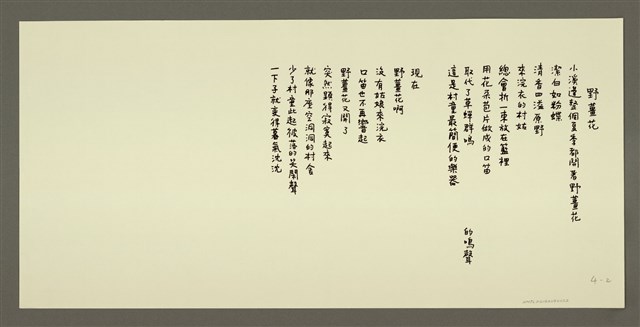 野薑花
小溪邊整個夏季都開著野薑花
潔白如粉蝶
清香四溢原野
來浣衣的村姑
總會折一束放在籃裡
用花朵苞片做成的口笛
取代了草蟬群鳴
的鳴聲
這是村童最簡便的樂器
現在
野薑花啊
沒有姑娘來浣衣
口笛也不再響起
野薑花又開了
突然顯得寂寞起來
就像那座空洞洞的村舍
少了村童此起彼落的笑鬧聲
一下子就變得暮氣沈沈
4-2